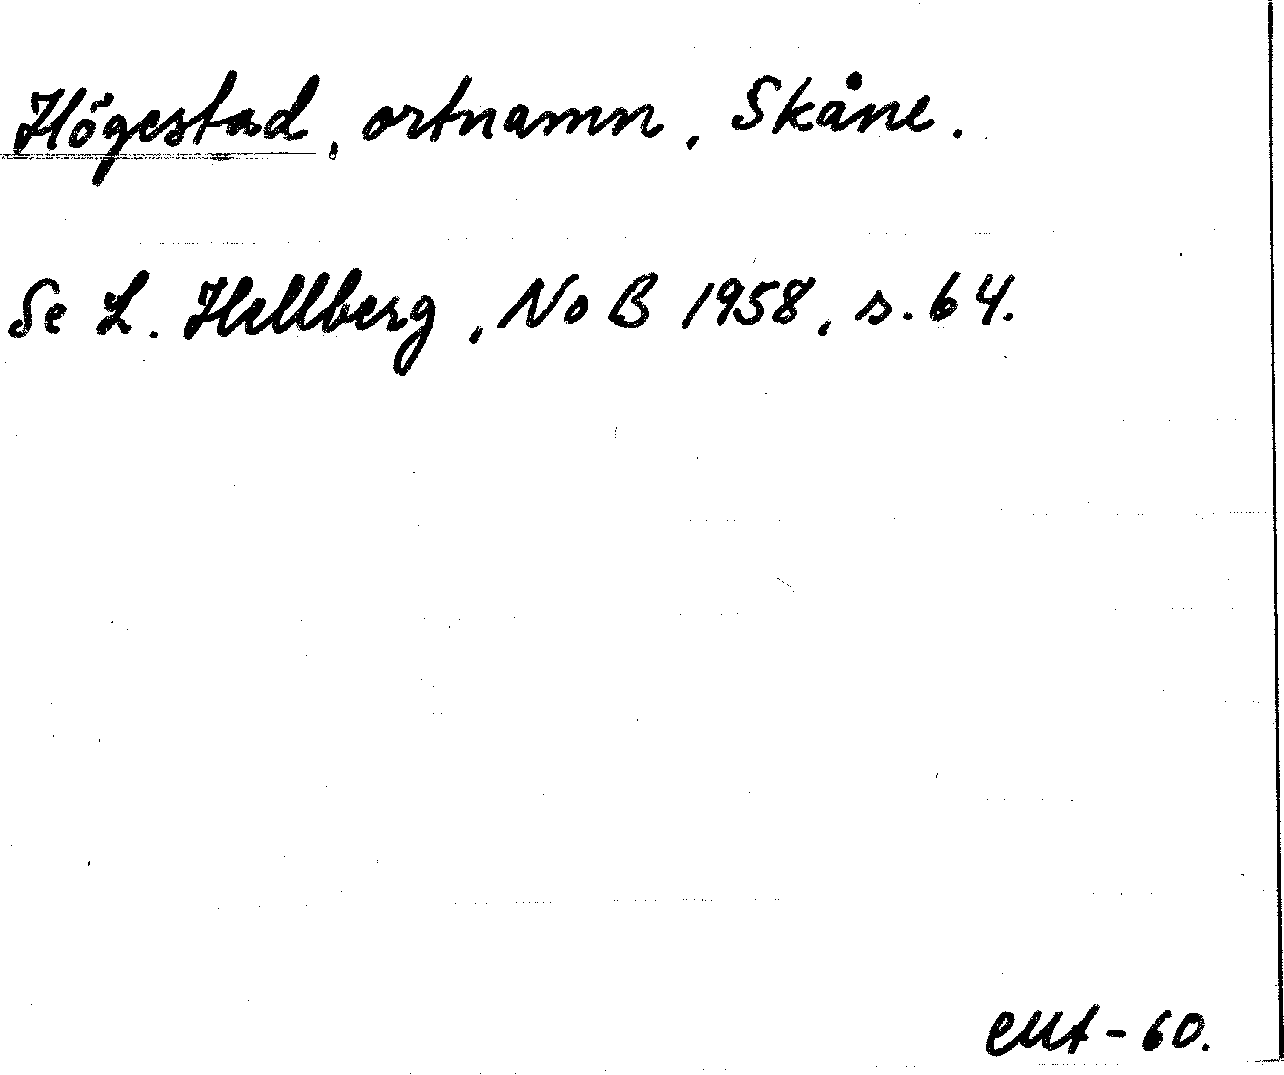 Högestad, ortnamn, Skåne.
Se L. Hellberg, NoB 1958, s. 64.
-60.